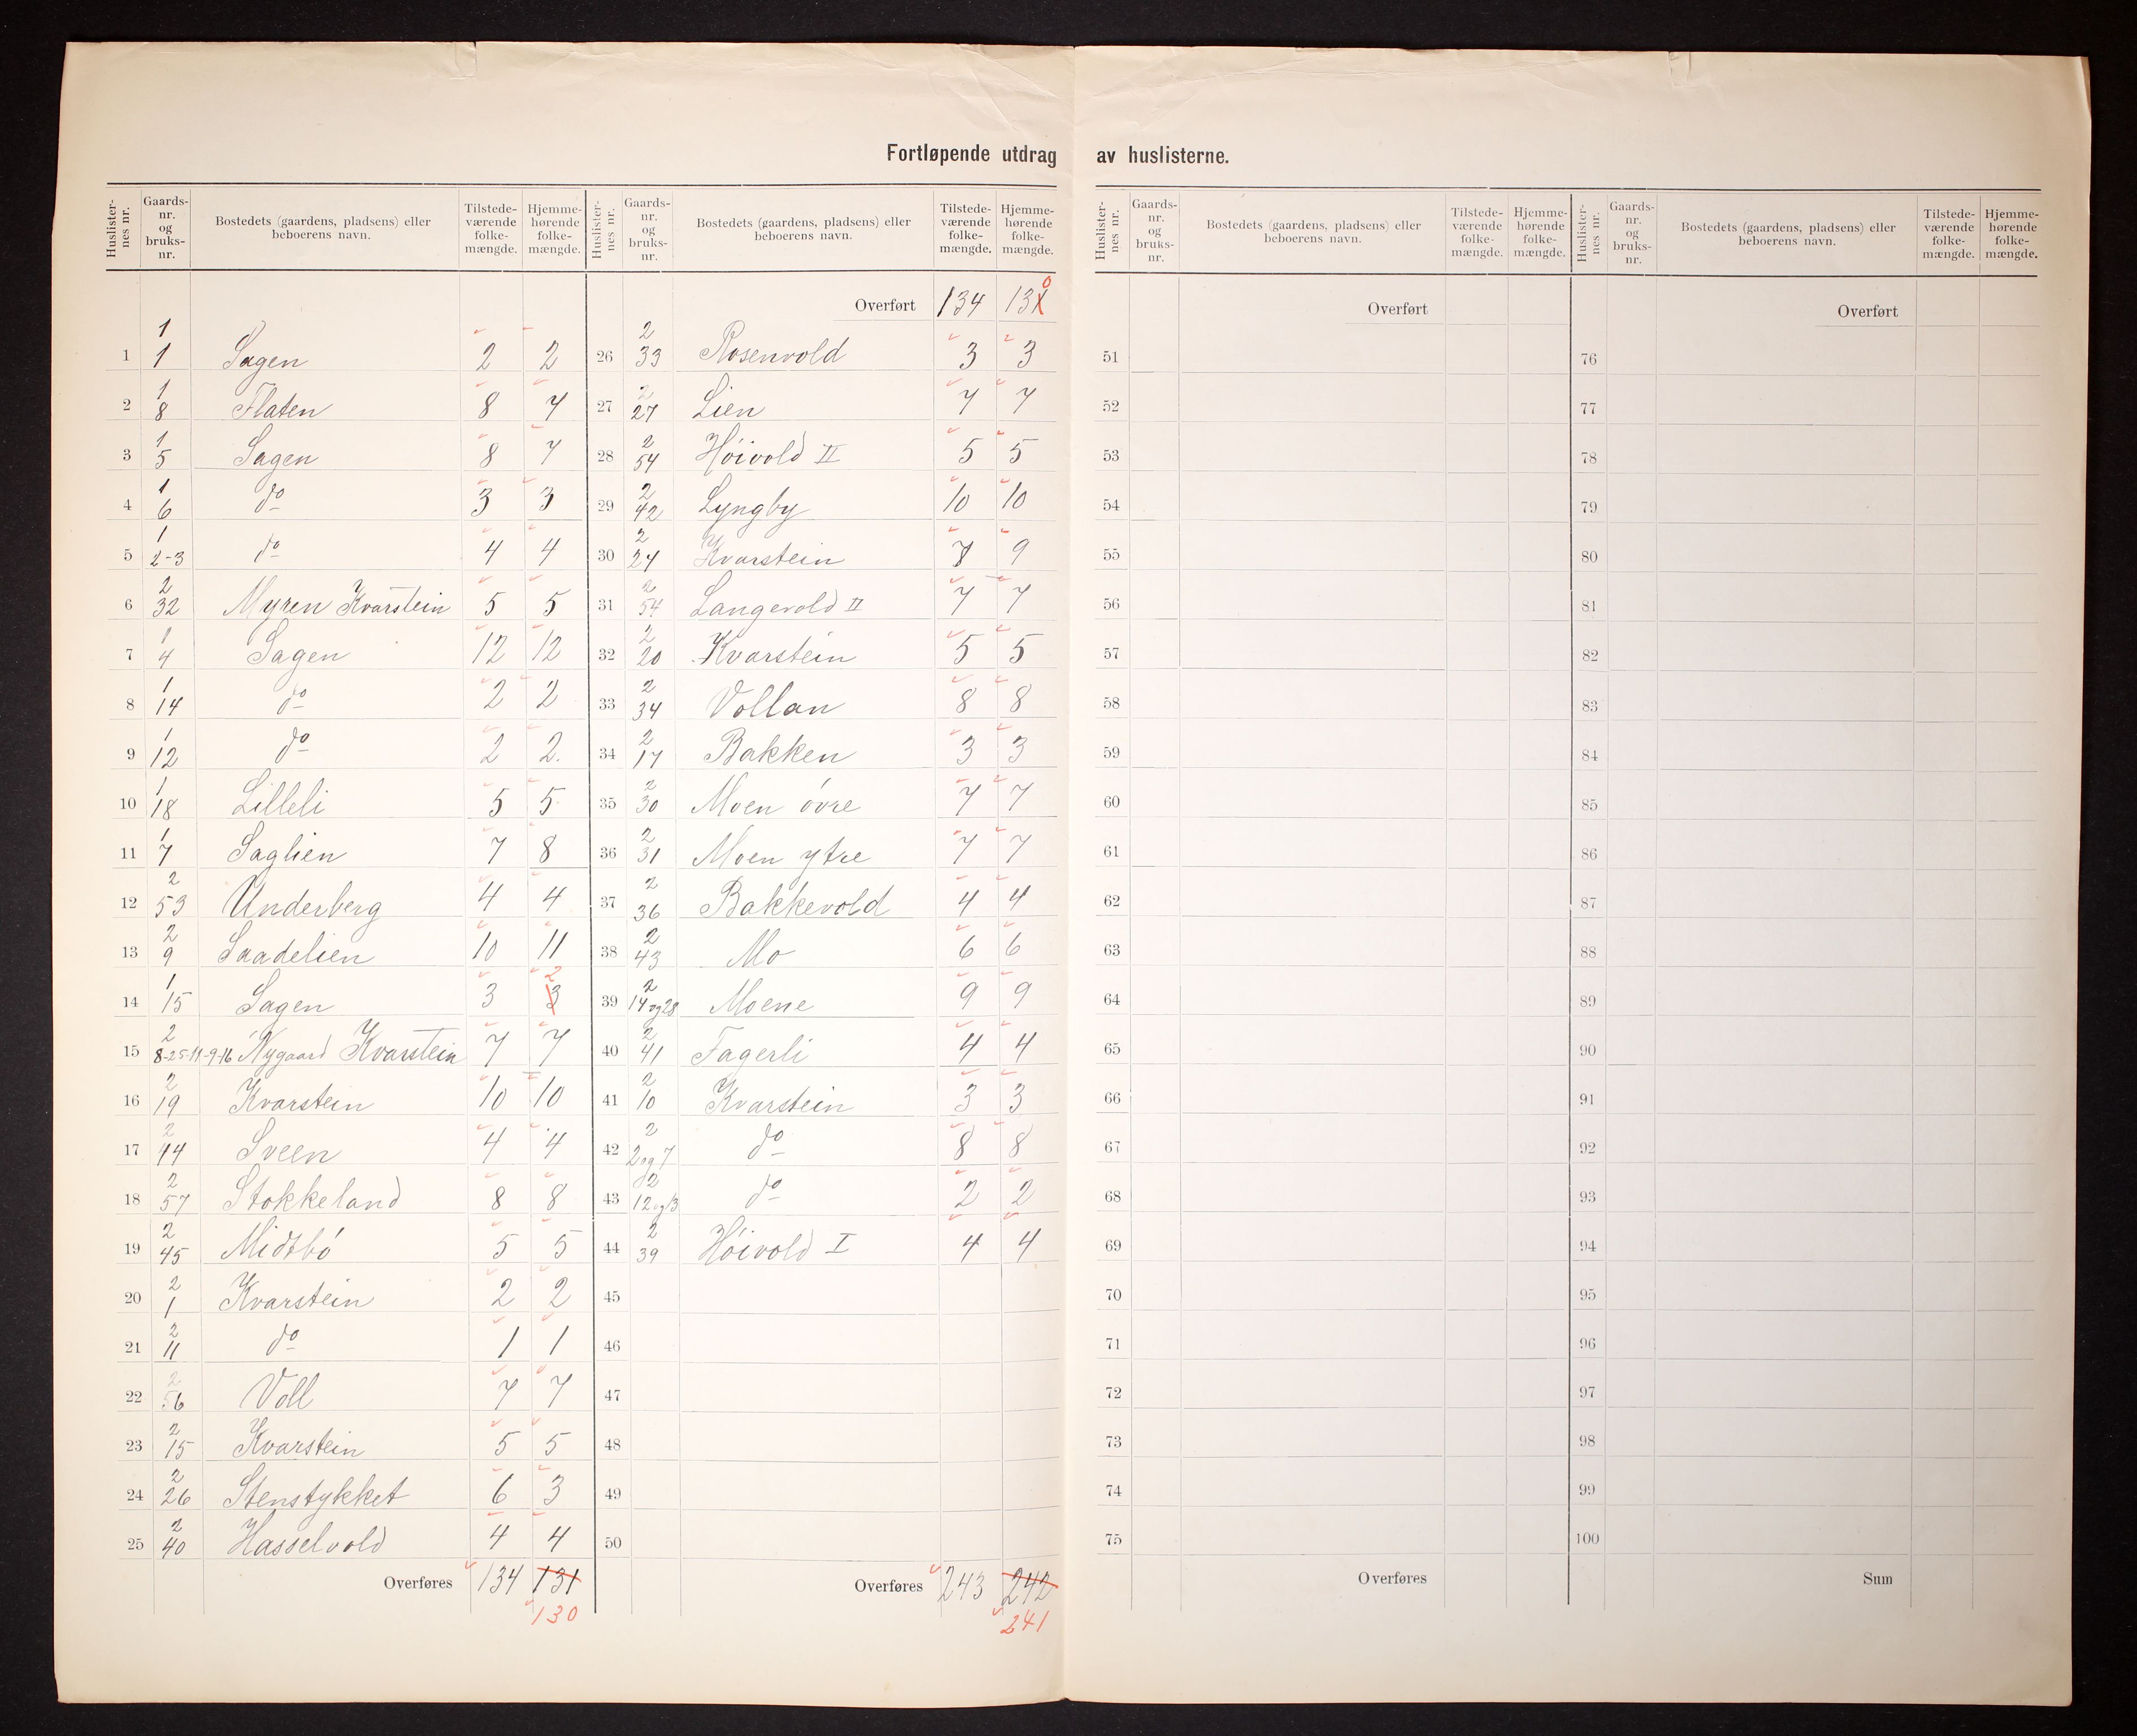 Fortløpende utdrag av huslisterne.
Huslister-nes nr. Gaards-nr. og bruks-nr. Bostedets (gaardens, pladsens) eller beboerens navn. Tilstede-værende folke-mængde. Hjemme-hørende folke-mængde.
1 1 1 Sagen 2 2
2 1 8 Flaten 8 7
3 1 5 Sagen 8 7
4 1 6 do 3 3
5 1 2-3 do 4 4
6 2 32 Myren Kvarstein 5 5
7 1 4 Sagen 12 12
8 1 14 do 2 2
9 1 12 do 2 2.
10 1 18 Lilleli 5 5
11 1 7 Saglien 7 8
12 2 53 Underberg 4 4
13 2 9 Saadelien 10 11
14 1 15 Sagen 3 3 2
15 2 8-25-11-9-16 Nygaard Kvarstein 7 7
16 2 19 Kvarstein 10 10
17 2 44 Sveen 4 4
18 2 57 Stokkeland 8 8
19 2 45 Midtbó 5 5
20 2 1 Kvarstein 2 2
21 2 11 do 1 1
22 2 56 Voll 7 7
23 2 15 Kvarstein 5 5
24 2 26 Stenstykket 6 3
25 2 40 Hasselvold 4 4
Overføres 134 131
130
Huslister-nes nr. Gaards-nr. og bruks-nr. Bostedets (gaardens, pladsens) eller beboerens navn. Tilstede-værende folke-mængde. Hjemme-hørende folke-mængde.
Overført 134 131 0
26 2 33 Rosenvold 3 3
27 2 27 Lien 7 7
28 2 54 Hóivold II 5 5
29 2 42 Lyngby 10 10
30 2 24 Kvarstein 7 9
31 2 54 Langevold II 7 7
32 2 20 Kvarstein 5 5
33 2 34 Vollan 8 8
34 2 17 Bakken 3 3
35 2 30 Moen óvre 7 7
36 2 31 Moen ytre 7 7
37 2 36 Bakkevold 4 4
38 2 43 Mo 6 6
39 2 14 og 28 Moene 9 9
40 2 41 Fagerli 4 4
41 2 10 Kvarstein 3 3
42 2 2 og 7 do 8 8
43 2 12 og 13 do 2 2
44 2 39 Hóivold I 4 4
45
46
47
48
49
50
Overføres 243 242
241
Huslister-nes nr. Gaards-nr. og bruks-nr. Bostedets (gaardens, pladsens) eller beboerens navn. Tilstede-værende folke-mængde. Hjemme-hørende folke-mængde.
Overført
51
52
53
54
55
56
57
58
59
60
61
62
63
64
65
66
67
68
69
70
71
72
73
74
75
Overføres
Huslister-nes nr. Gaards-nr. og bruks-nr. Bostedets (gaardens, pladsens) eller beboerens navn. Tilstede-værende folke-mængde. Hjemme-hørende folke-mængde.
Overført
76
77
78
79
80
81
82
83
84
85
86
87
88
89
90
91
92
93
94
95
96
97
98
99
100
Sum